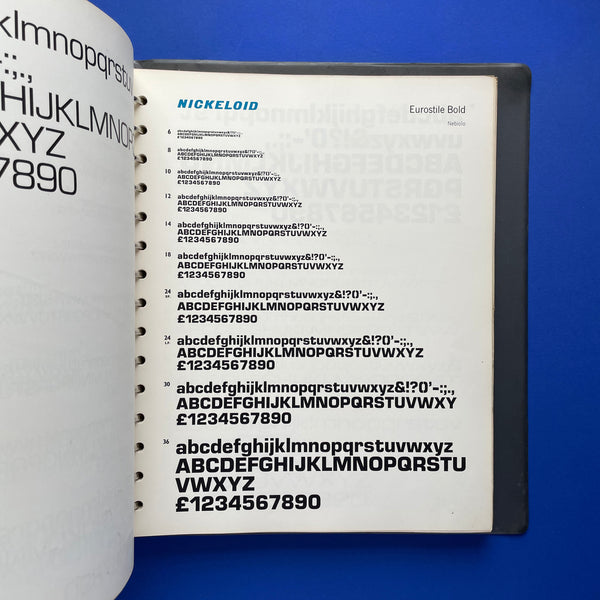 klmnopqrstu
-:;.,
HIJKLMNOP
XYZ
7890
NICKELOID
Eurostile Bold
Nebiolo
6 abcdefghijklmnopqrstuvwxyz&!?()'-:;.,
ABCDEFGHIJKLMNOPQRSTUVWXYZ
£1234567890
8 abcdefghijklmnopqrstuvwxyz&!?()'-:;.,
ABCDEFGHIJKLMNOPQRSTUVWXYZ
£1234567890
10 abcdefghijklmnopqrstuvwxyz&!?()'-:;.,
ABCDEFGHIJKLMNOPQRSTUVWXYZ
£1234567890
12 abcdefghijklmnopqrstuvwxyz&!?()'-:;.,
ABCDEFGHIJKLMNOPQRSTUVWXYZ
£1234567890
14 abcdefghijklmnopqrstuvwxyz&!?()'-:;.,
ABCDEFGHIJKLMNOPQRSTUVWXYZ
£1234567890
18 abcdefghijklmnopqrstuvwxyz&!?()'-:;.,
ABCDEFGHIJKLMNOPQRSTUVWXYZ
£1234567890
24 abcdefghijklmnopqrstuvwxyz&!?()'-:;.,
ABCDEFGHIJKLMNOPQRSTUVWXYZ
£1234567890
24 abcdefghijklmnopqrstuvwxyz&!?()'-:;.,
ABCDEFGHIJKLMNOPQRSTUVWXYZ
£1234567890
30 abcdefghijklmnopqrstuvwxyz&!?()'-:;.,
ABCDEFGHIJKLMNOPQRSTUVWXY
£1234567890
36 abcdefghijklmnopqrstuvwxyz
ABCDEFGHIJKLMNOPQRSTU
VWXYZ
£1234567890